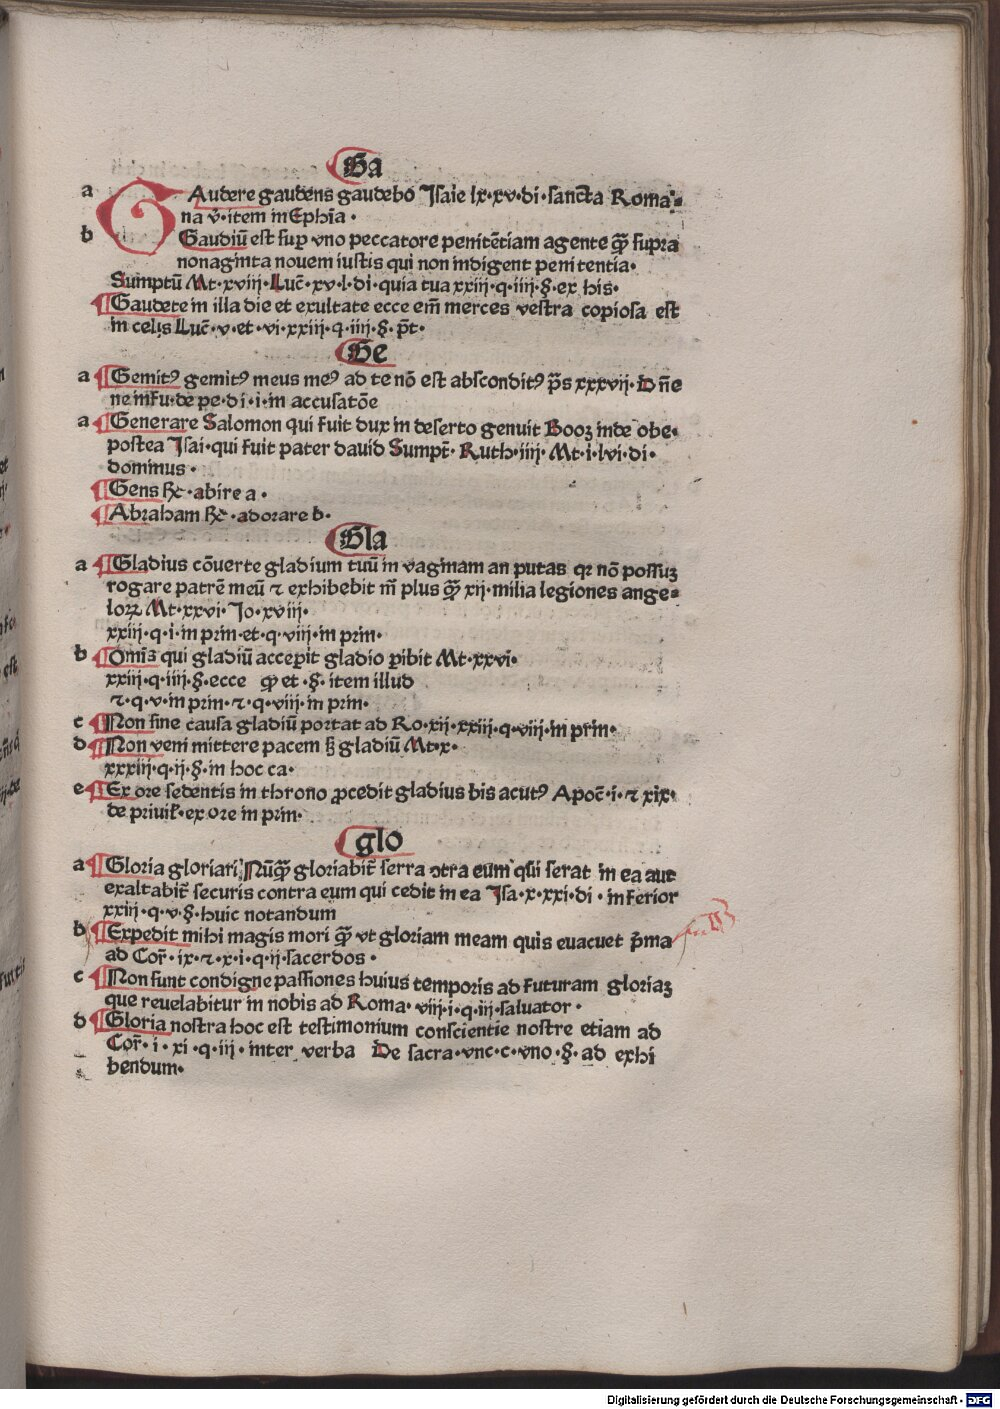 Ga
a GAudere gaudens gaudebo Isaie lx·xv·di·sancta Roma⸗
na v̄·item in Ephīa·
b Gaudiū est sup̱ vno peccatore penitētiam agente q̄ȝ supra
nonaginta nouem iustis qui non indigent penitentia·
Sumptū Mt·xviij·Luc̄·xv·l·di·quia tua xxiij·q·iiij·§·ex his·
¶Gaudete in illa die et exultate ecce em̄ merces vestra copiosa est
in celis Luc̄·v·et·vi·xxiij·q·iiij·§·p̄t·
Ge
a ¶Gemitꝰ gemitꝰ meus meꝰ ad te nō est absconditꝰ p̄s xxxvij·D n̄e
ne in fu·de pe·di·i·in accusatōe
a ¶Generare Salomon qui fuit dux in deserto genuit Booȝ inde obe·
postea Isai·qui fuit pater dauid Sumpt̄·Ruth·iiij·Mt·i·lvi·di·
dominus·
¶Gens Rc̄·abire a·
¶Abraham Rc̄·adorare b·
Gla
a ¶Gladius cōuerte gladium tuū in vaginam an putas qꝛ nō possuȝ
rogare patrē meū ⁊ exhibebit m̄ plus q̄ȝ xij·milia legiones ange⸗
loꝝ Mt·xxvi·Jo·xviij·
xxiij·q·i·in prin·et·q·viij·in prin·
b ¶Omīs qui gladiū accep̱it gladio p̱ibit Mt·xxvi·
xxiij·q·iiij·§·ecce ꝙ et·§·item illud
⁊·q·v·in prin·⁊·q·viij·in prin·
c ¶Non sine causa gladiū portat ad Ro·xij·xxiij·q·viij·in prin·
d ¶Non veni mittere pacem sȝ gladiū Mt·x·
xxxiij·q·ij·§·in hoc ca·
e ¶Ex ore sedentis in throno ꝓcedit gladius bis acutꝰ Apoc̄·i·⁊ xix·
de priuil̄·ex ore in prin·
glo
a ¶Gloria gloriari Nūq̄ȝ gloriabit̄ serra ↄtra eum qui serat in ea aut
exaltabit̄ securis contra eum qui cedit in ea Isa·x·xxi·di·inferior
xxiij·q·v·§·huic notandum
b ¶Expedit mihi magis mori q̄ȝ vt gloriam meam quis euacuet p̄ma
ad Cor̄·ix·⁊·x·i·q·ij·sacerdos·
c ¶Non sunt condigne passiones huius temporis ad futuram gloriaȝ
que reuelabitur in nobis ad Roma·viij·i·q·iij·saluator·
d ¶Gloria nostra hoc est testimonium conscientie nostre etiam ad
Cor̄·i·xi·q·iij·inter verba De sacra·vnc·c·vno·§·ad exhi
bendum·
Digitalisierung gefördert durch die Deutsche Forschungsgemeinschaft - DFG